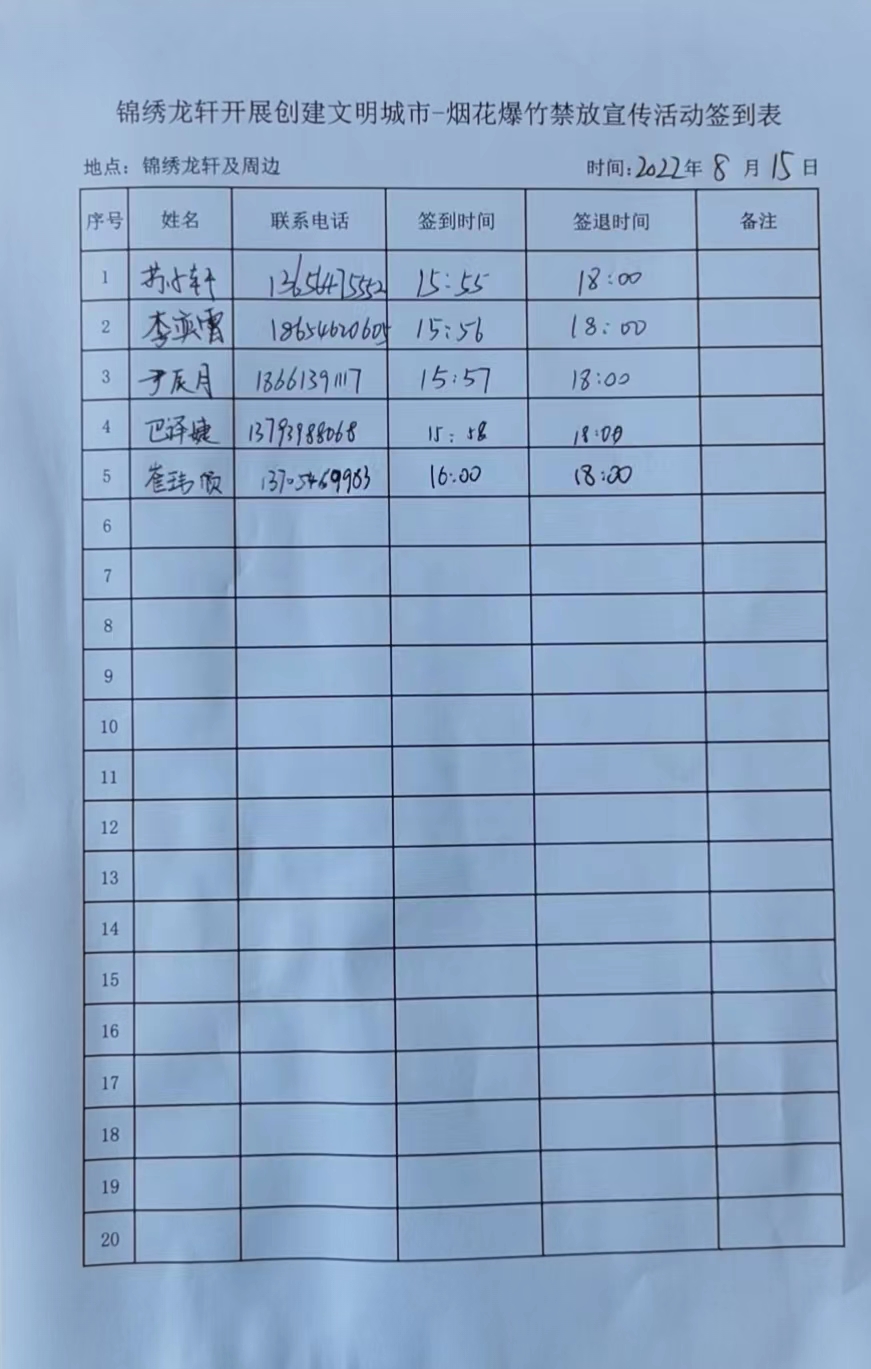 锦绣龙轩开展创建文明城市-烟花爆竹禁放宣传活动签到表
地点：锦绣龙轩及周边 时间：2022年 8 月 15 日
序号 姓名 联系电话 签到时间 签退时间 备注
1 轩 13656475552 15:55 18:00
2 李奕雪 18654620605 15:56 18:00
3 尹辰月 18661391117 15:57 18:00
4 巴泽婕 13793988068 15:58 18:00
5 崔玮 13705469983 16:00 18:00
6
7
8
9
10
11
12
13
14
15
16
17
18
19
20